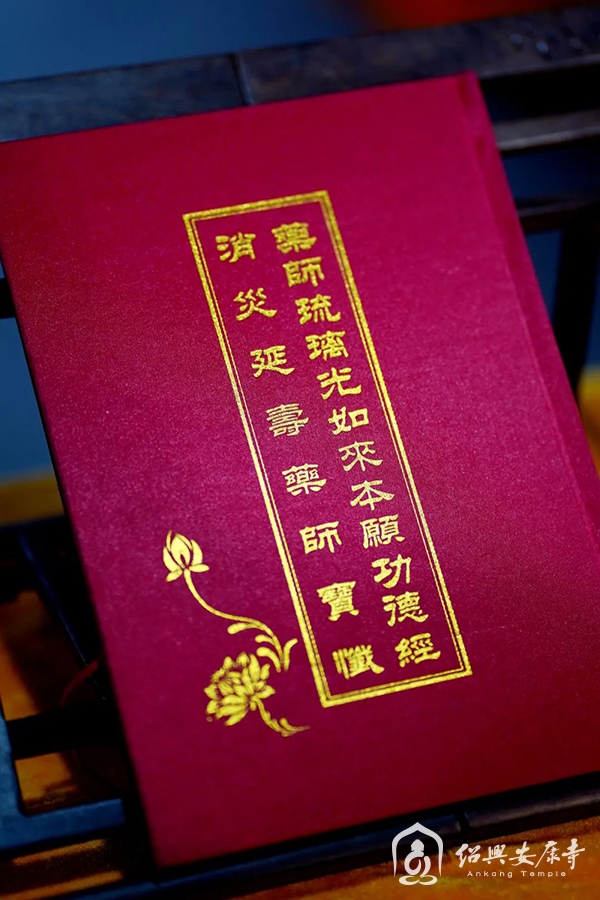 藥師琉璃光如來本願功德經
消災延壽藥師寶懺
紹興安康寺
Ankang Temple